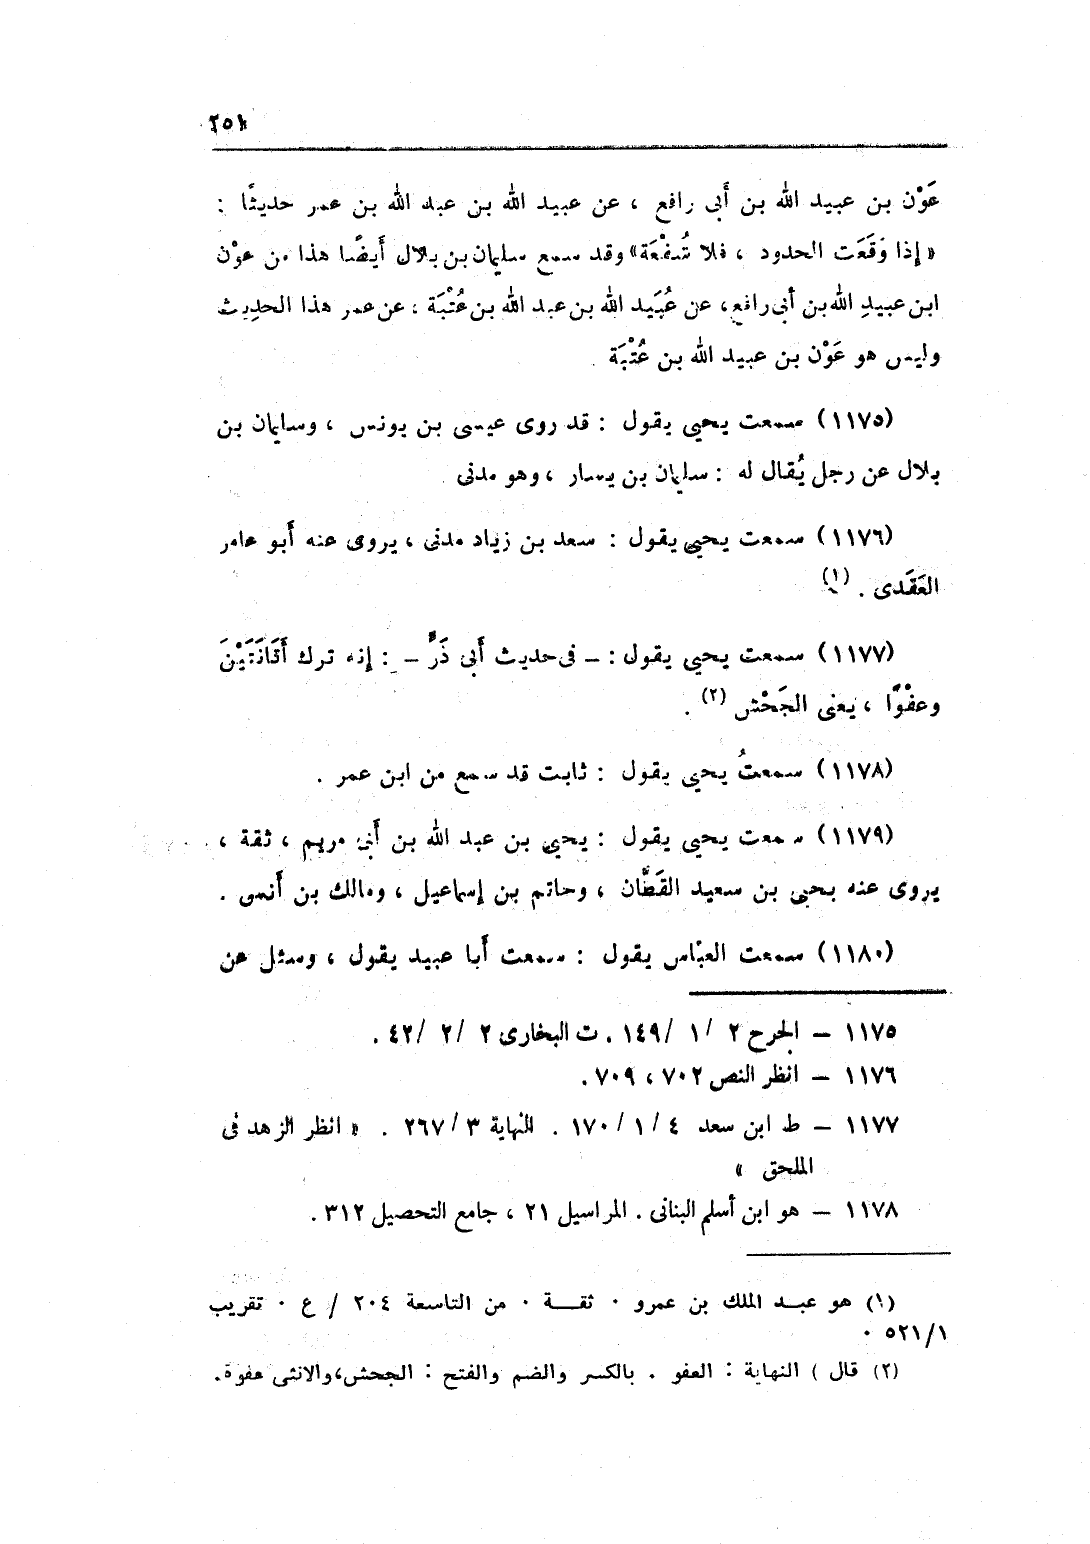 ٢٥١
عَوْن بن عبيد الله بن أَبى رافع ، عن عبيد الله بن عبد الله بن عمر حديثًا :
« إذا وَقَعَت الحدود ، فلا شُفْعَة » وقد سمع سليمان بن بلال أَيضًا هذا من عوْن
ابن عبيدِ الله بن أَبى رافع ، عن عُبَيد الله بن عبد الله بن عُتْبَة ، عن عمر هذا الحديث
وليس هو عَوْن بن عبيد الله بن عُتْبَة .
(١١٧٥) سمعت يحيى يقول : قد روى عيسى بن يونس ، وسليمان بن
بلال عن رجل يُقال له : سليمان بن يسار ، وهو مدنى
(١١٧٦) سمعت يحيى يقول : سعد بن زياد مدنى ، يروى عنه أَبو عامر
العَقَدى . (١)
(١١٧٧) سمعت يحيى يقول : – فى حديث أَبى ذَرٍّ – : إنه ترك أَتَانَتَيْنَ
وعفْوًا ، يعنى الجَحْش (٢) .
(١١٧٨) سمعتُ يحيى يقول : ثابت قد سمع من ابن عمر .
(١١٧٩) سمعت يحيى يقول : يحيى بن عبد الله بن أَبى مريم ، ثقة ،
يروى عنه يحيى بن سعيد القَطَّان ، وحاتم بن إسماعيل ، ومالك بن أَنس .
(١١٨٠) سمعت العبّاس يقول : سمعت أَبا عبيد يقول ، وسئل عن
١١٧٥ – الجرح ٢ /١ /١٤٩ . ت البخارى ٢ /٢ /٤٢ .
١١٧٦ – انظر النص ٧٠٢ ، ٧٠٩ .
١١٧٧ – ط ابن سعد ٤ /١ /١٧٠ . النهاية ٣ /٢٦٧ . « انظر الزهد فى
الملحق »
١١٧٨ – هو ابن أسلم البنانى . المراسيل ٢١ ، جامع التحصيل ٣١٢ .
(١) هو عبد الملك بن عمرو ٠ ثقة ٠ من التاسعة ٢٠٤ / ع ٠ تقريب
٥٢١/١ ٠
(٢) قال ) النهاية : العفو . بالكسر والضم والفتح : الجحش، والانثى عفوة .